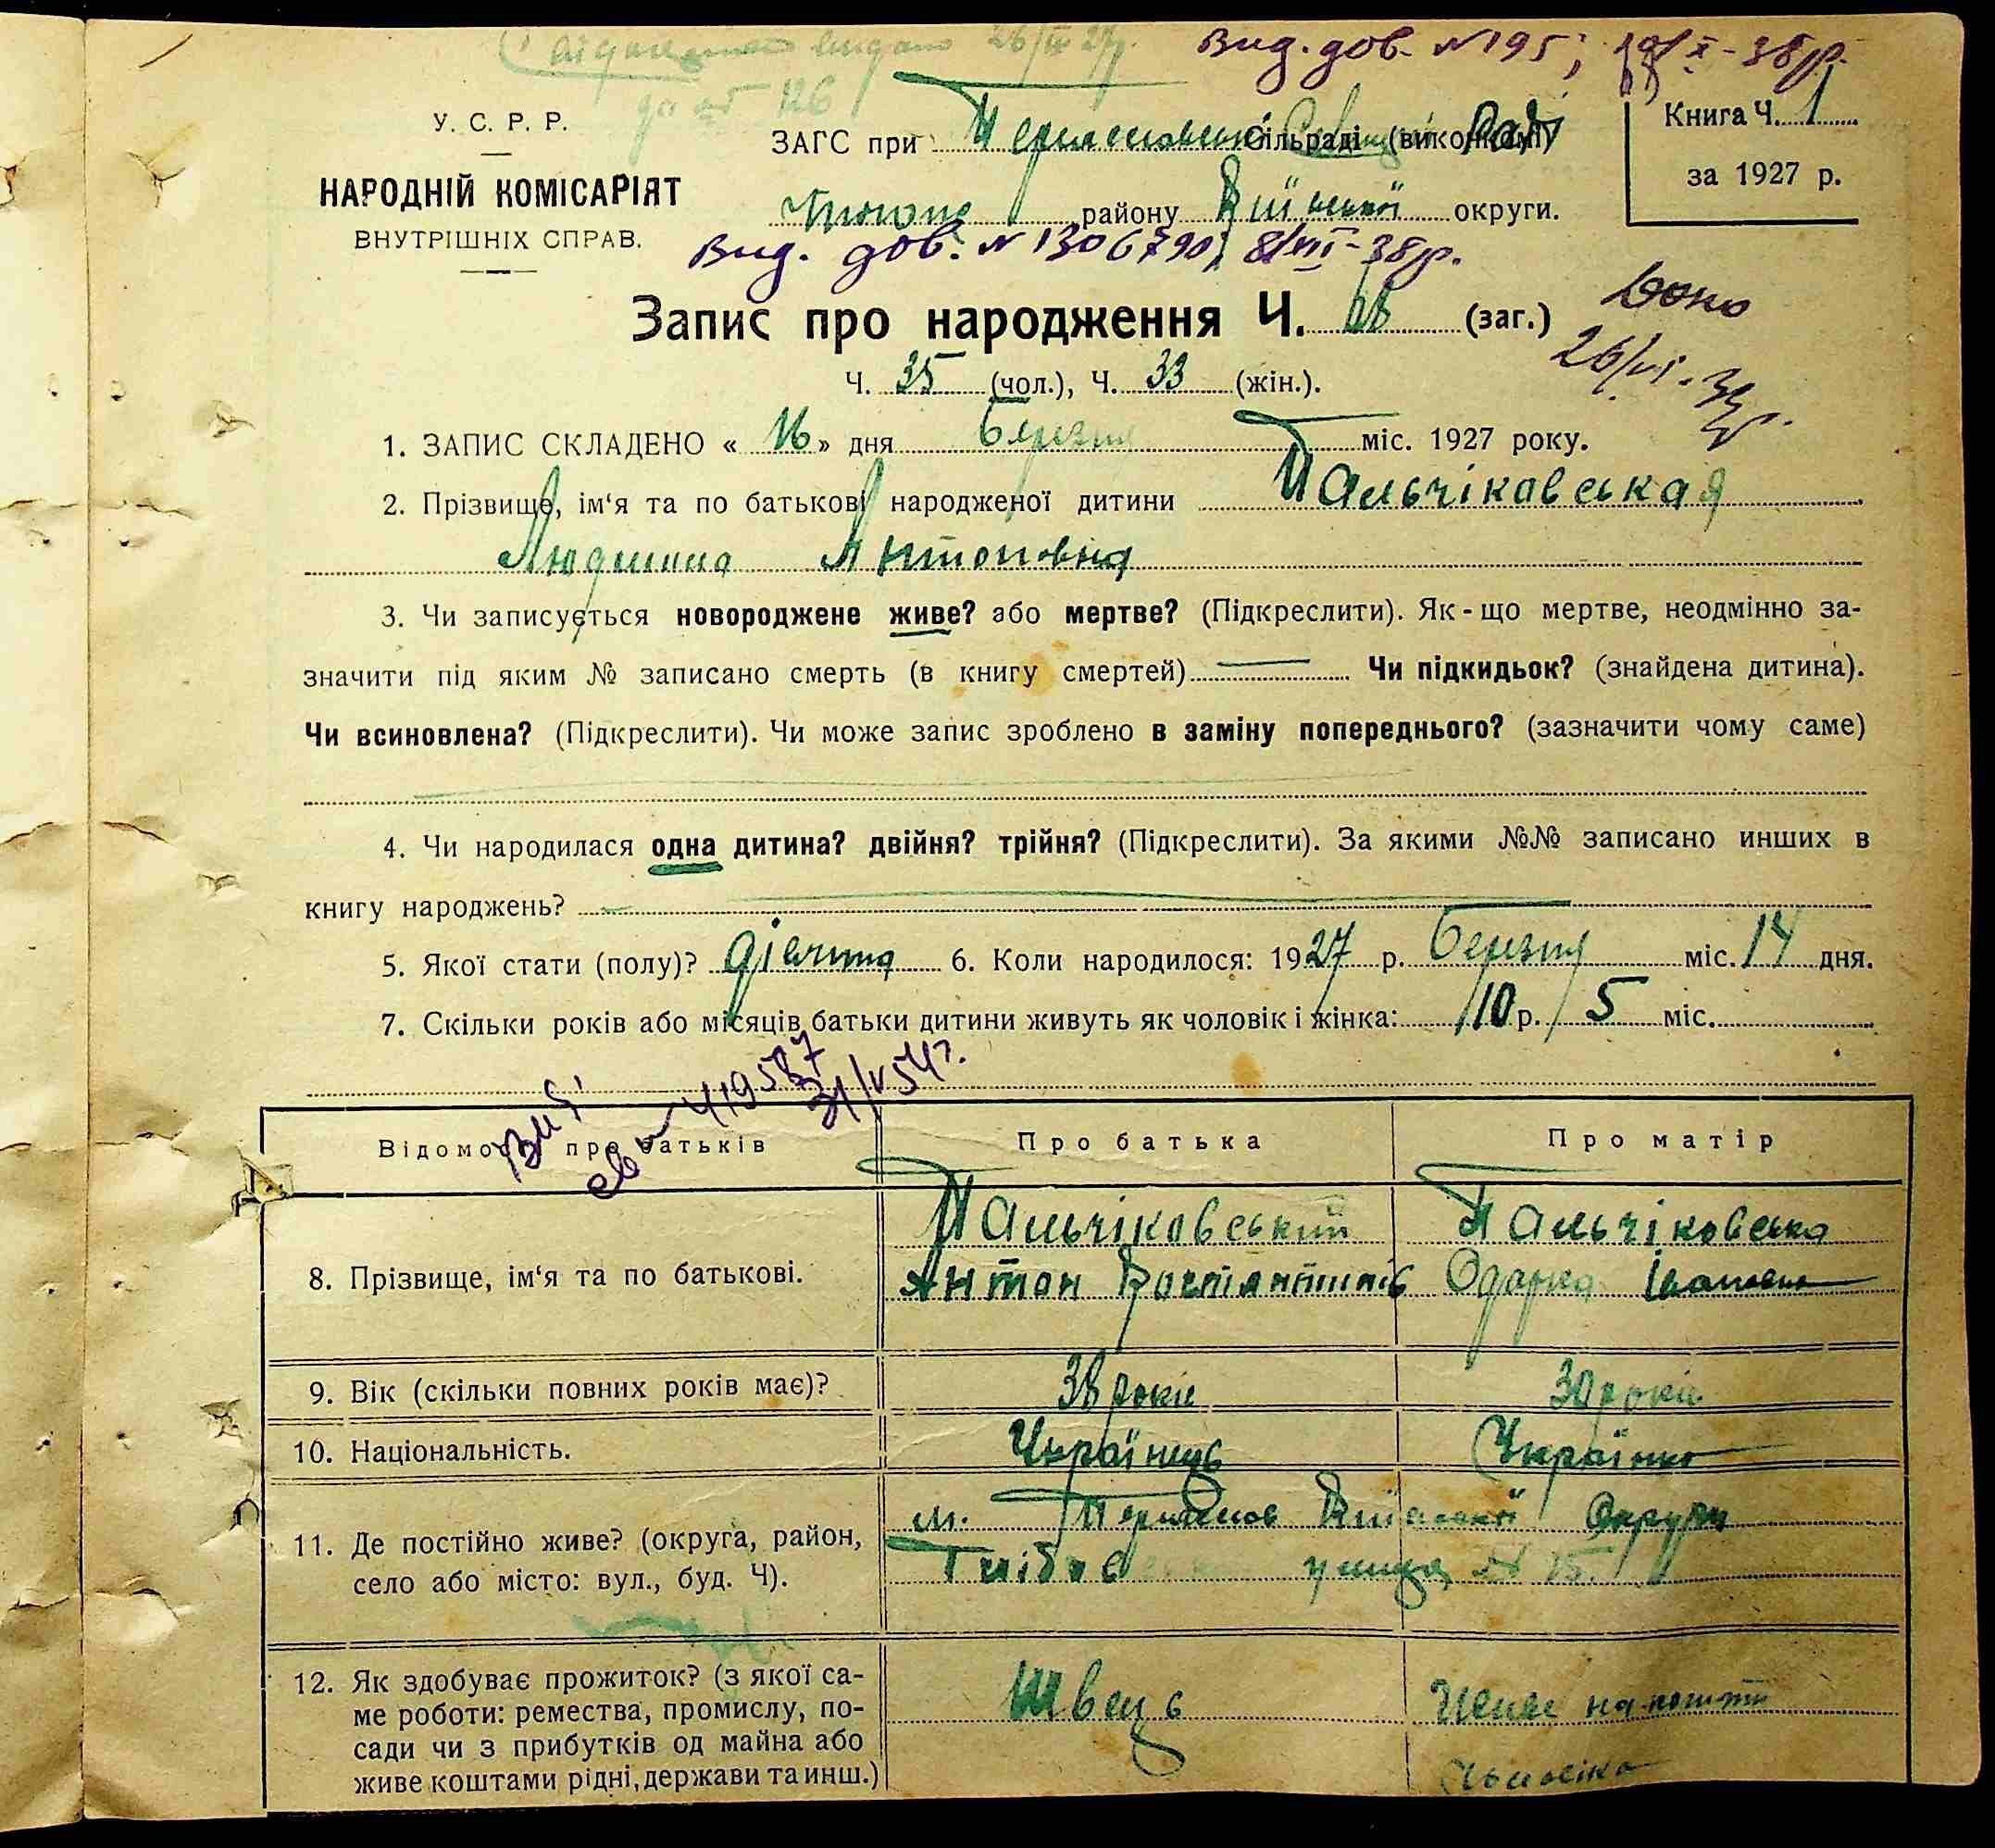 видано 26/III 27р.
до № 126
Вид. дов. №195; 19/X-38р.
У. С. Р. Р.
НАРОДНІЙ КОМІСАРІЯТ
ВНУТРІШНІХ СПРАВ.
ЗАГС при Сільраді (виконкомі) Раді
району Київської округи.
Книга Ч. 1
за 1927 р.
Вид. дов. № 1306790, 8/VII-38р.
Запис про народження Ч. 68 (заг.)
26/VI-33р.
Ч. 35 (чол.), Ч. 33 (жін.).
1. ЗАПИС СКЛАДЕНО « 16 » дня березня міс. 1927 року.
2. Прізвище, ім‘я та по батькові народженої дитини Пальчіковськая
Людмила Антоновна
3. Чи записується новороджене живе? або мертве? (Підкреслити). Як-що мертве, неодмінно за-
значити під яким № записано смерть (в книгу смертей) Чи підкидьок? (знайдена дитина).
Чи всиновлена? (Підкреслити). Чи може запис зроблено в заміну попереднього? (зазначити чому саме)
4. Чи народилася одна дитина? двійня? трійня? (Підкреслити). За якими №№ записано инших в
книгу народжень?
5. Якої стати (полу)? дівчина 6. Коли народилося: 1927 р. березня міс. 14 дня.
7. Скільки років або місяців батьки дитини живуть як чоловік і жінка: 10 р. 5 міс.
св № 419587
31/V 54г.
Відомості про батьків
Про батька
Про матір
8. Прізвище, ім‘я та по батькові.
Пальчіковський
Антон Костянтинів
Пальчіковська
Одарка Івановна
9. Вік (скільки повних років має)?
38 років
30 років
10. Національність.
Українець
Українка
11. Де постійно живе? (округа, район,
село або місто: вул., буд. Ч).
м. Київської Округи
улиця № 15.
12. Як здобуває прожиток? (з якої са-
ме роботи: ремества, промислу, по-
сади чи з прибутків од майна або
живе коштами рідні, держави та инш.)
Швець
на кошти
чоловіка